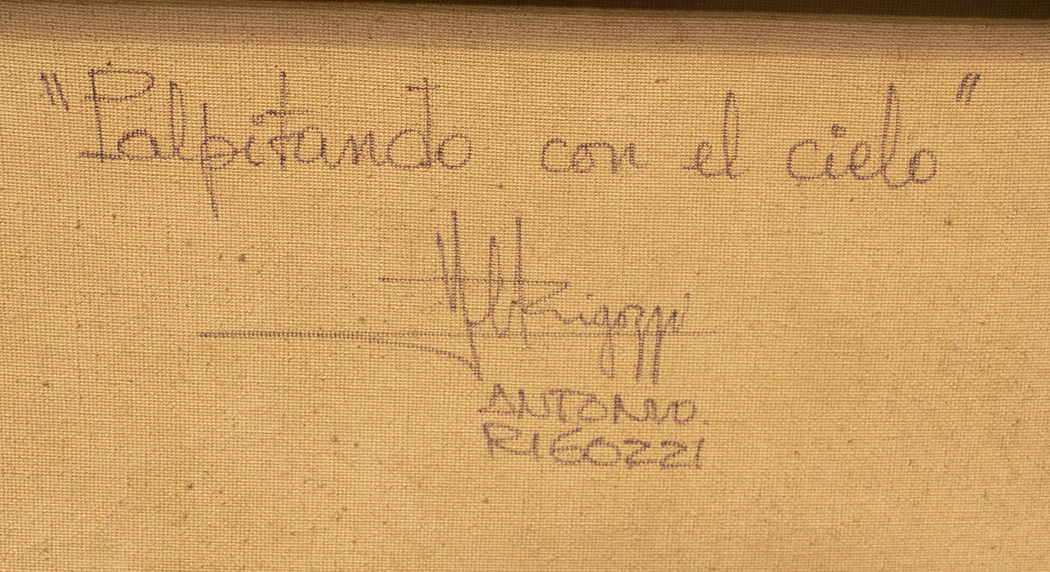 "Palpitando con el cielo"
Rigozzi
ANTONIO.
RIGOZZI